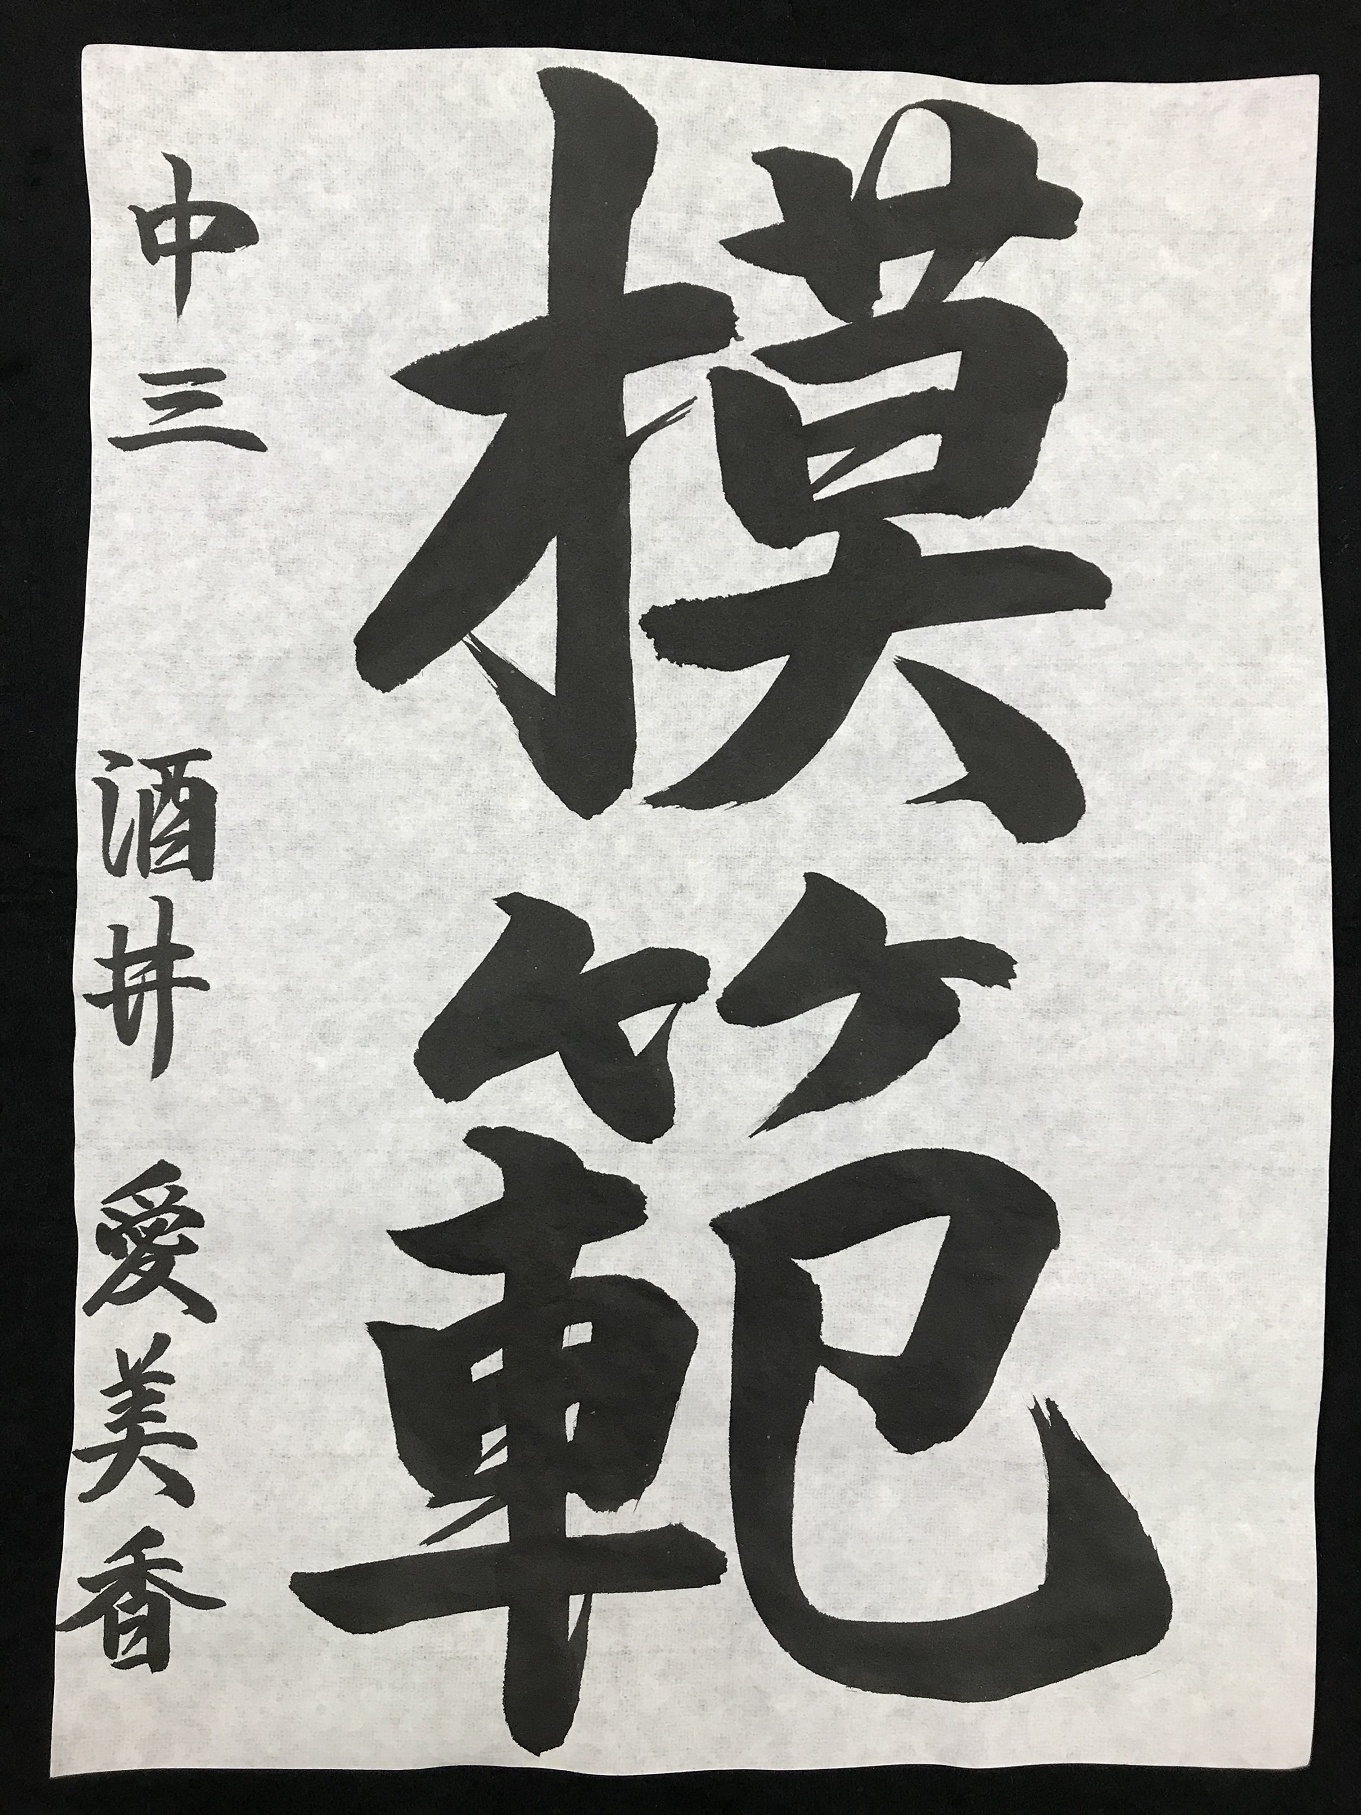 模範
中三 酒井 愛美香